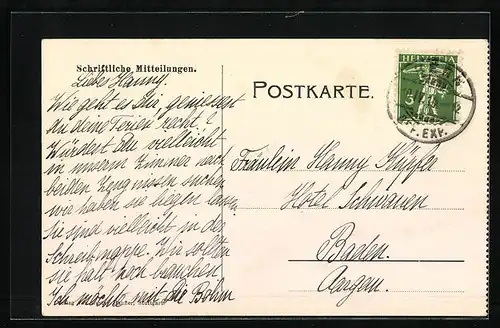 Schriftliche Mitteilungen.
Liebe Hanny.
Wie geht es Dir, geniessest
du deine Ferien recht?
Würdest du vielleicht
in unserm Zimmer nach
beiden Zeugnissen suchen
wir haben sie liegen lassen
Sie sind vielleicht in der
Schreibmappe. Wir sollten
sie halt noch brauchen
Ich möchte mit die Bohm
POSTKARTE.
HELVETIA
5
F. EXP.
Fräulein Hanny Küpfer
Hotel Schwanen
Baden.
Aargau.